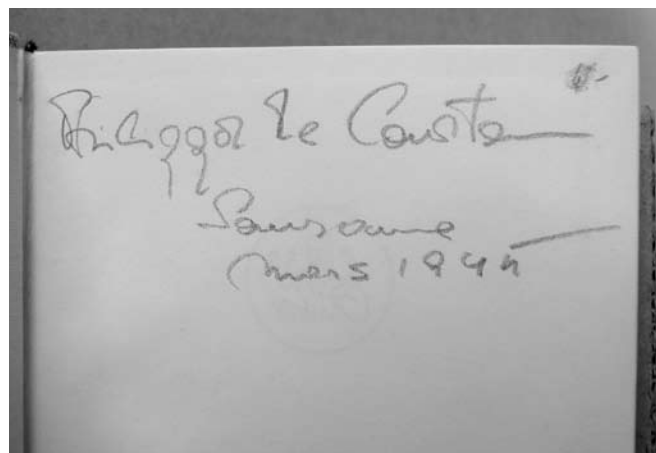 Philippe de Coulon
Lausanne
mars 1944